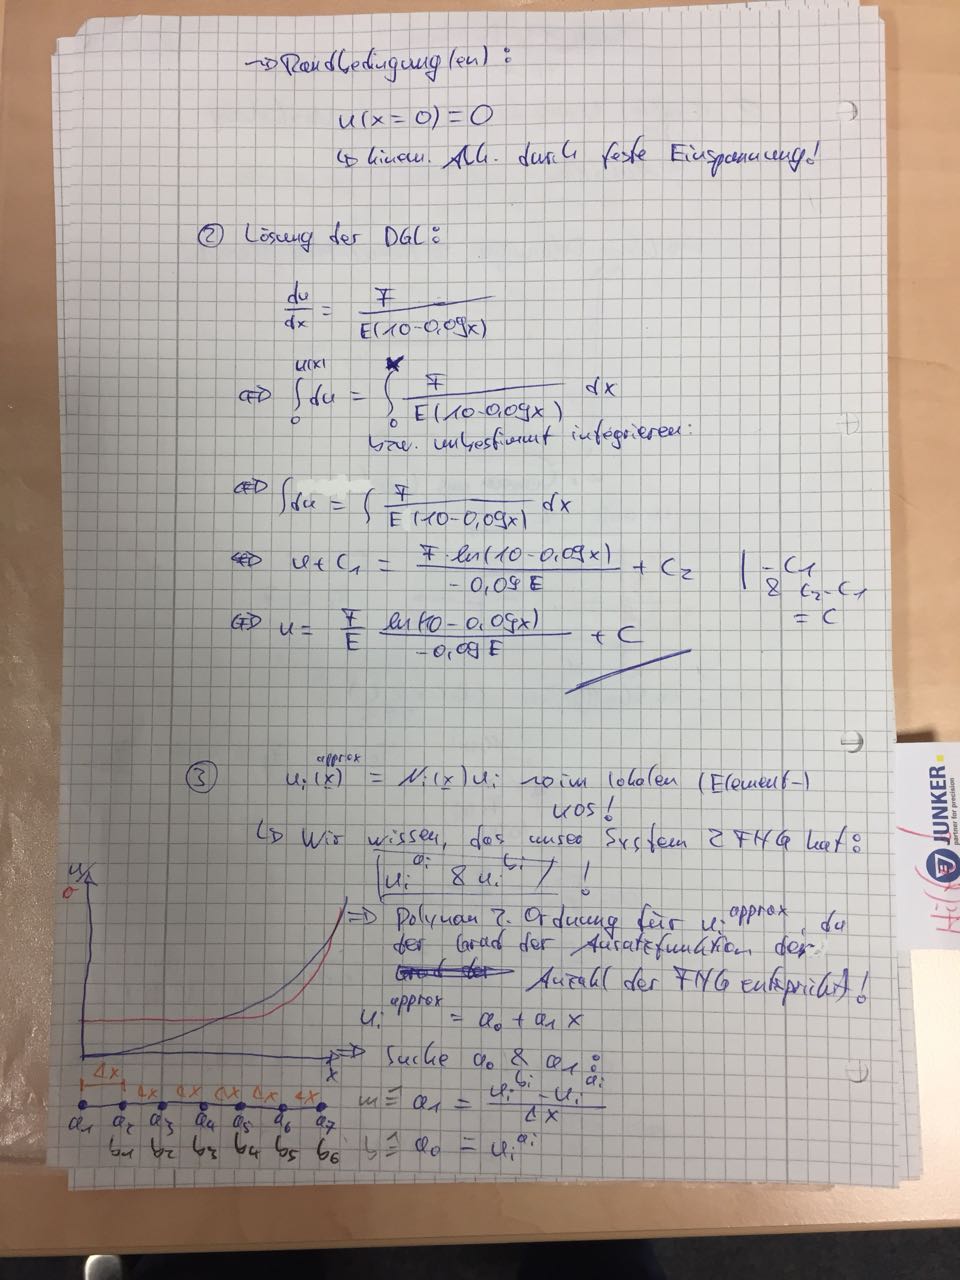 → Randbedingung(en):
u(x=0)=0
↳ kinem. Ak. durch feste Einspannung!
② Lösung der DGL:
du/dx = F/(E(10-0,09x))
⇔ ∫₀^u(x) du = ∫₀^x F/(E(10-0,09x)) dx
bzw. unbestimmt integrieren:
⇔ ∫du = ∫ F/(E(10-0,09x)) dx
⇔ u + C₁ = F·ln(10-0,09x)/(-0,09E) + C₂ | -C₁
& C₂-C₁
= C
⇔ u = F/E ln(10-0,09x)/(-0,09E) + C
③ uᵢ^approx(x) = Nᵢ(x)uᵢ im lokalen (Element-)
KOS!
↳ Wir wissen, das unser System 2 FHG hat:
uᵢ^aᵢ & uᵢ^bᵢ !
⇒ Polynom 2. Ordnung für uᵢ^approx, da
der Grad der Ansatzfunktion der
Anzahl der FHG entspricht!
uᵢ^approx = a₀ + a₁x
⇒ Suche a₀ & a₁:
m ≙ a₁ = (uᵢ^bᵢ - uᵢ^aᵢ)/Δx
≙ a₀ = uᵢ^aᵢ
u
σ
x
Δx Δx Δx Δx Δx Δx
a₁ a₂ a₃ a₄ a₅ a₆ a₇
JUNKER
partner for precision